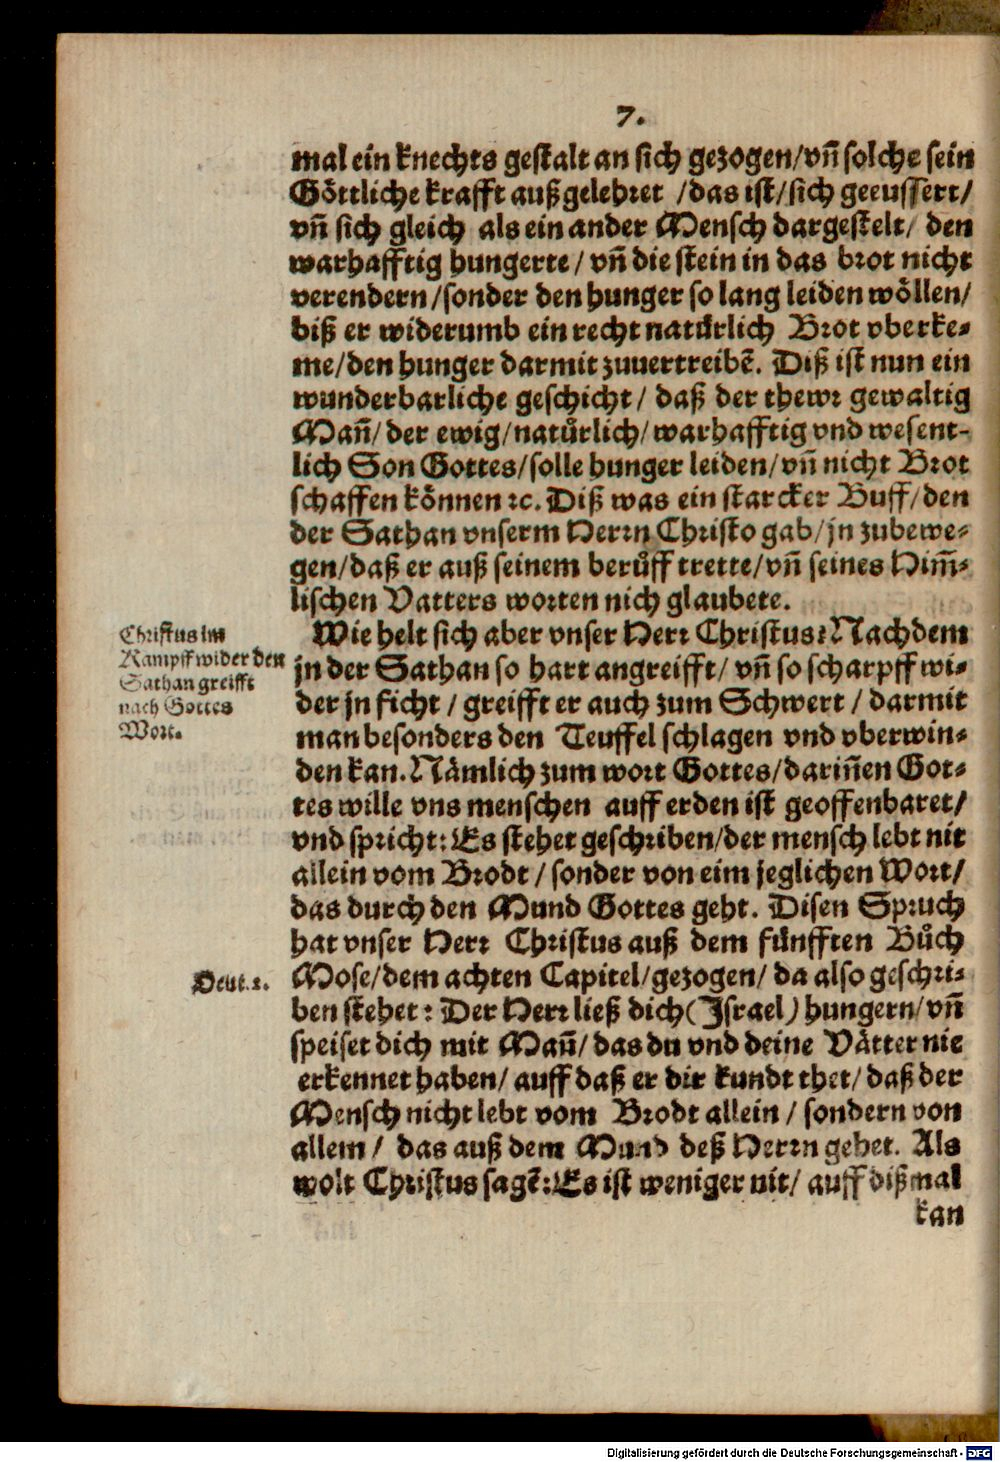 7.
mal ein knechts gestalt an sich gezogen/vñ solche sein
Göttliche krafft außgelehret /das ist/sich geeussert/
vñ sich gleich als ein ander Mensch dargestelt/ den
warhafftig hungerte/ vñ die stein in das brot nicht
verendern/sonder den hunger so lang leiden wöllen/
biß er widerumb ein recht natürlich Brot vberke-
me/den hunger darmit zuuertreibẽ. Diß ist nun ein
wunderbarliche geschicht/ daß der thewr gewaltig
Mañ/ der ewig/natůrlich/warhafftig vnd wesent-
lich Son Gottes/solle hunger leiden/vñ nicht Brot
schaffen können ꝛc. Diß was ein starcker Buff/den
der Sathan vnserm Herrn Christo gab/jn zubewe-
gen/daß er auß seinem berůff trette/vñ seines Him̃-
lischen Vatters worten nich glaubete.
Christus im
Kampff wider den
Sathan greifft
nach Gottes
Wort.
Wie helt sich aber vnser Herr Christus? Nachdem
jn der Sathan so hart angreifft/ vñ so scharpff wi-
der jn ficht / greifft er auch zum Schwert / darmit
man besonders den Teuffel schlagen vnd vberwin-
den kan. Nämlich zum wort Gottes/dariñen Got-
tes wille vns menschen auff erden ist geoffenbaret/
vnd spricht: Es stehet geschriben/der mensch lebt nit
allein vom Brodt / sonder von eim jeglichen Wort/
das durch den Mund Gottes geht. Disen Spruch
hat vnser Herr Christus auß dem fünfften Bůch
Deut. 8.
Mose/dem achten Capitel/gezogen/ da also geschri-
ben stehet: Der Herr ließ dich (Israel) hungern/vñ
speiset dich mit Mañ/ das du vnd deine Vätter nie
erkennet haben/ auff daß er dir kundt thet/ daß der
Mensch nicht lebt vom Brodt allein / sondern von
allem / das auß dem Mund deß Herrn gehet. Als
wolt Christus sagẽ: Es ist weniger nit/ auff dißmal
kan
Digitalisierung gefördert durch die Deutsche Forschungsgemeinschaft - DFG